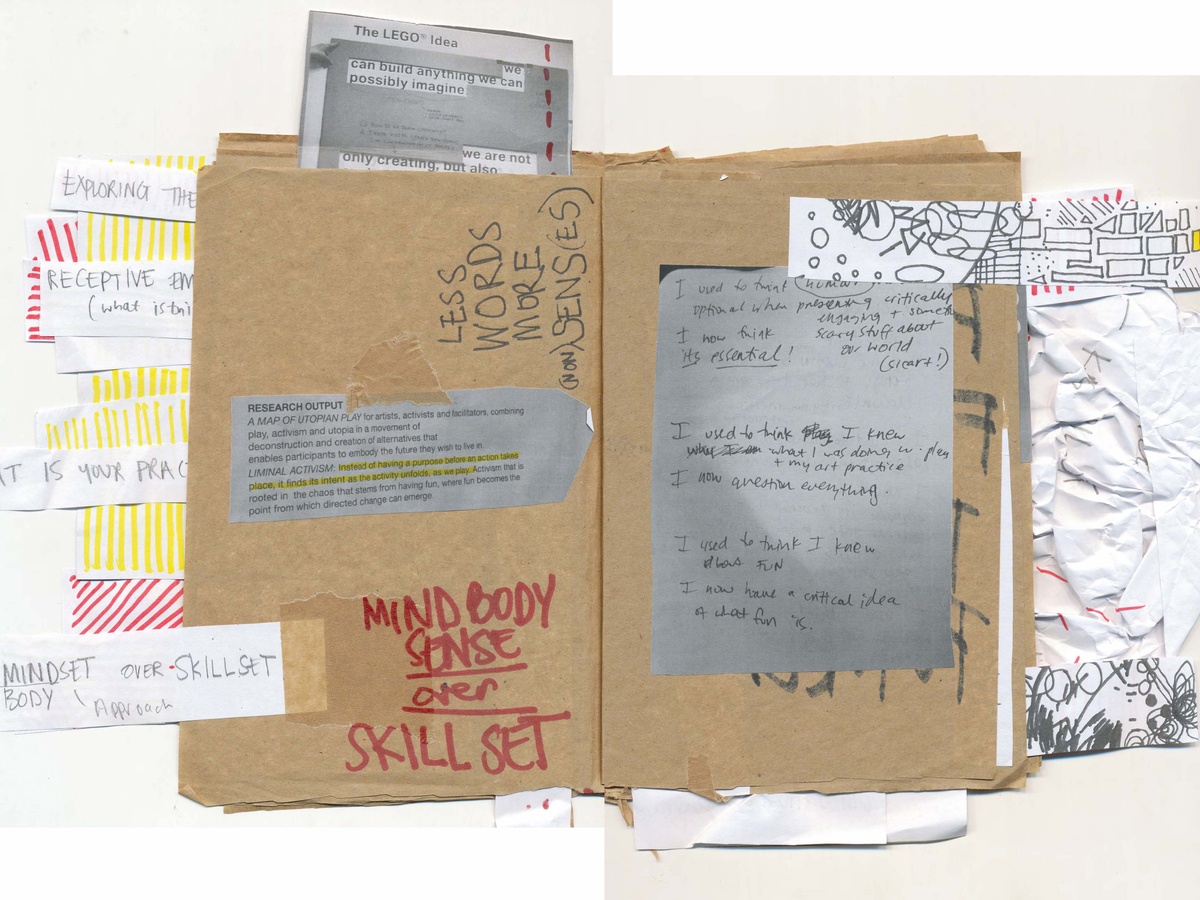 The LEGO® Idea
we
can build anything we can
possibly imagine
we are not
only creating, but also
EXPLORING THE
RECEPTIVE EM
(what is
IT IS YOUR PRAC
MINDSET OVER SKILLSET
BODY
Approach
LESS
WORDS
MORE
(NON) SENS(ES)
RESEARCH OUTPUT
A MAP OF UTOPIAN PLAY for artists, activists and facilitators, combining
play, activism and utopia in a movement of
deconstruction and creation of alternatives that
enables participants to embody the future they wish to live in.
LIMINAL ACTIVISM: Instead of having a purpose before an action takes
place, it finds its intent as the activity unfolds, as we play. Activism that is
rooted in the chaos that stems from having fun, where fun becomes the
point from which directed change can emerge.
MIND BODY
SENSE
over
SKILL SET
I used to think (humar)
optional when presenting critically
engaging + someth
scary stuff about
our world
(sicart!)
I now think
its essential!
I used to think I knew
what I was doing w. play
+ my art practice
I now question everything.
I used to think I knew
about FUN
I now have a critical idea
of what fun is.